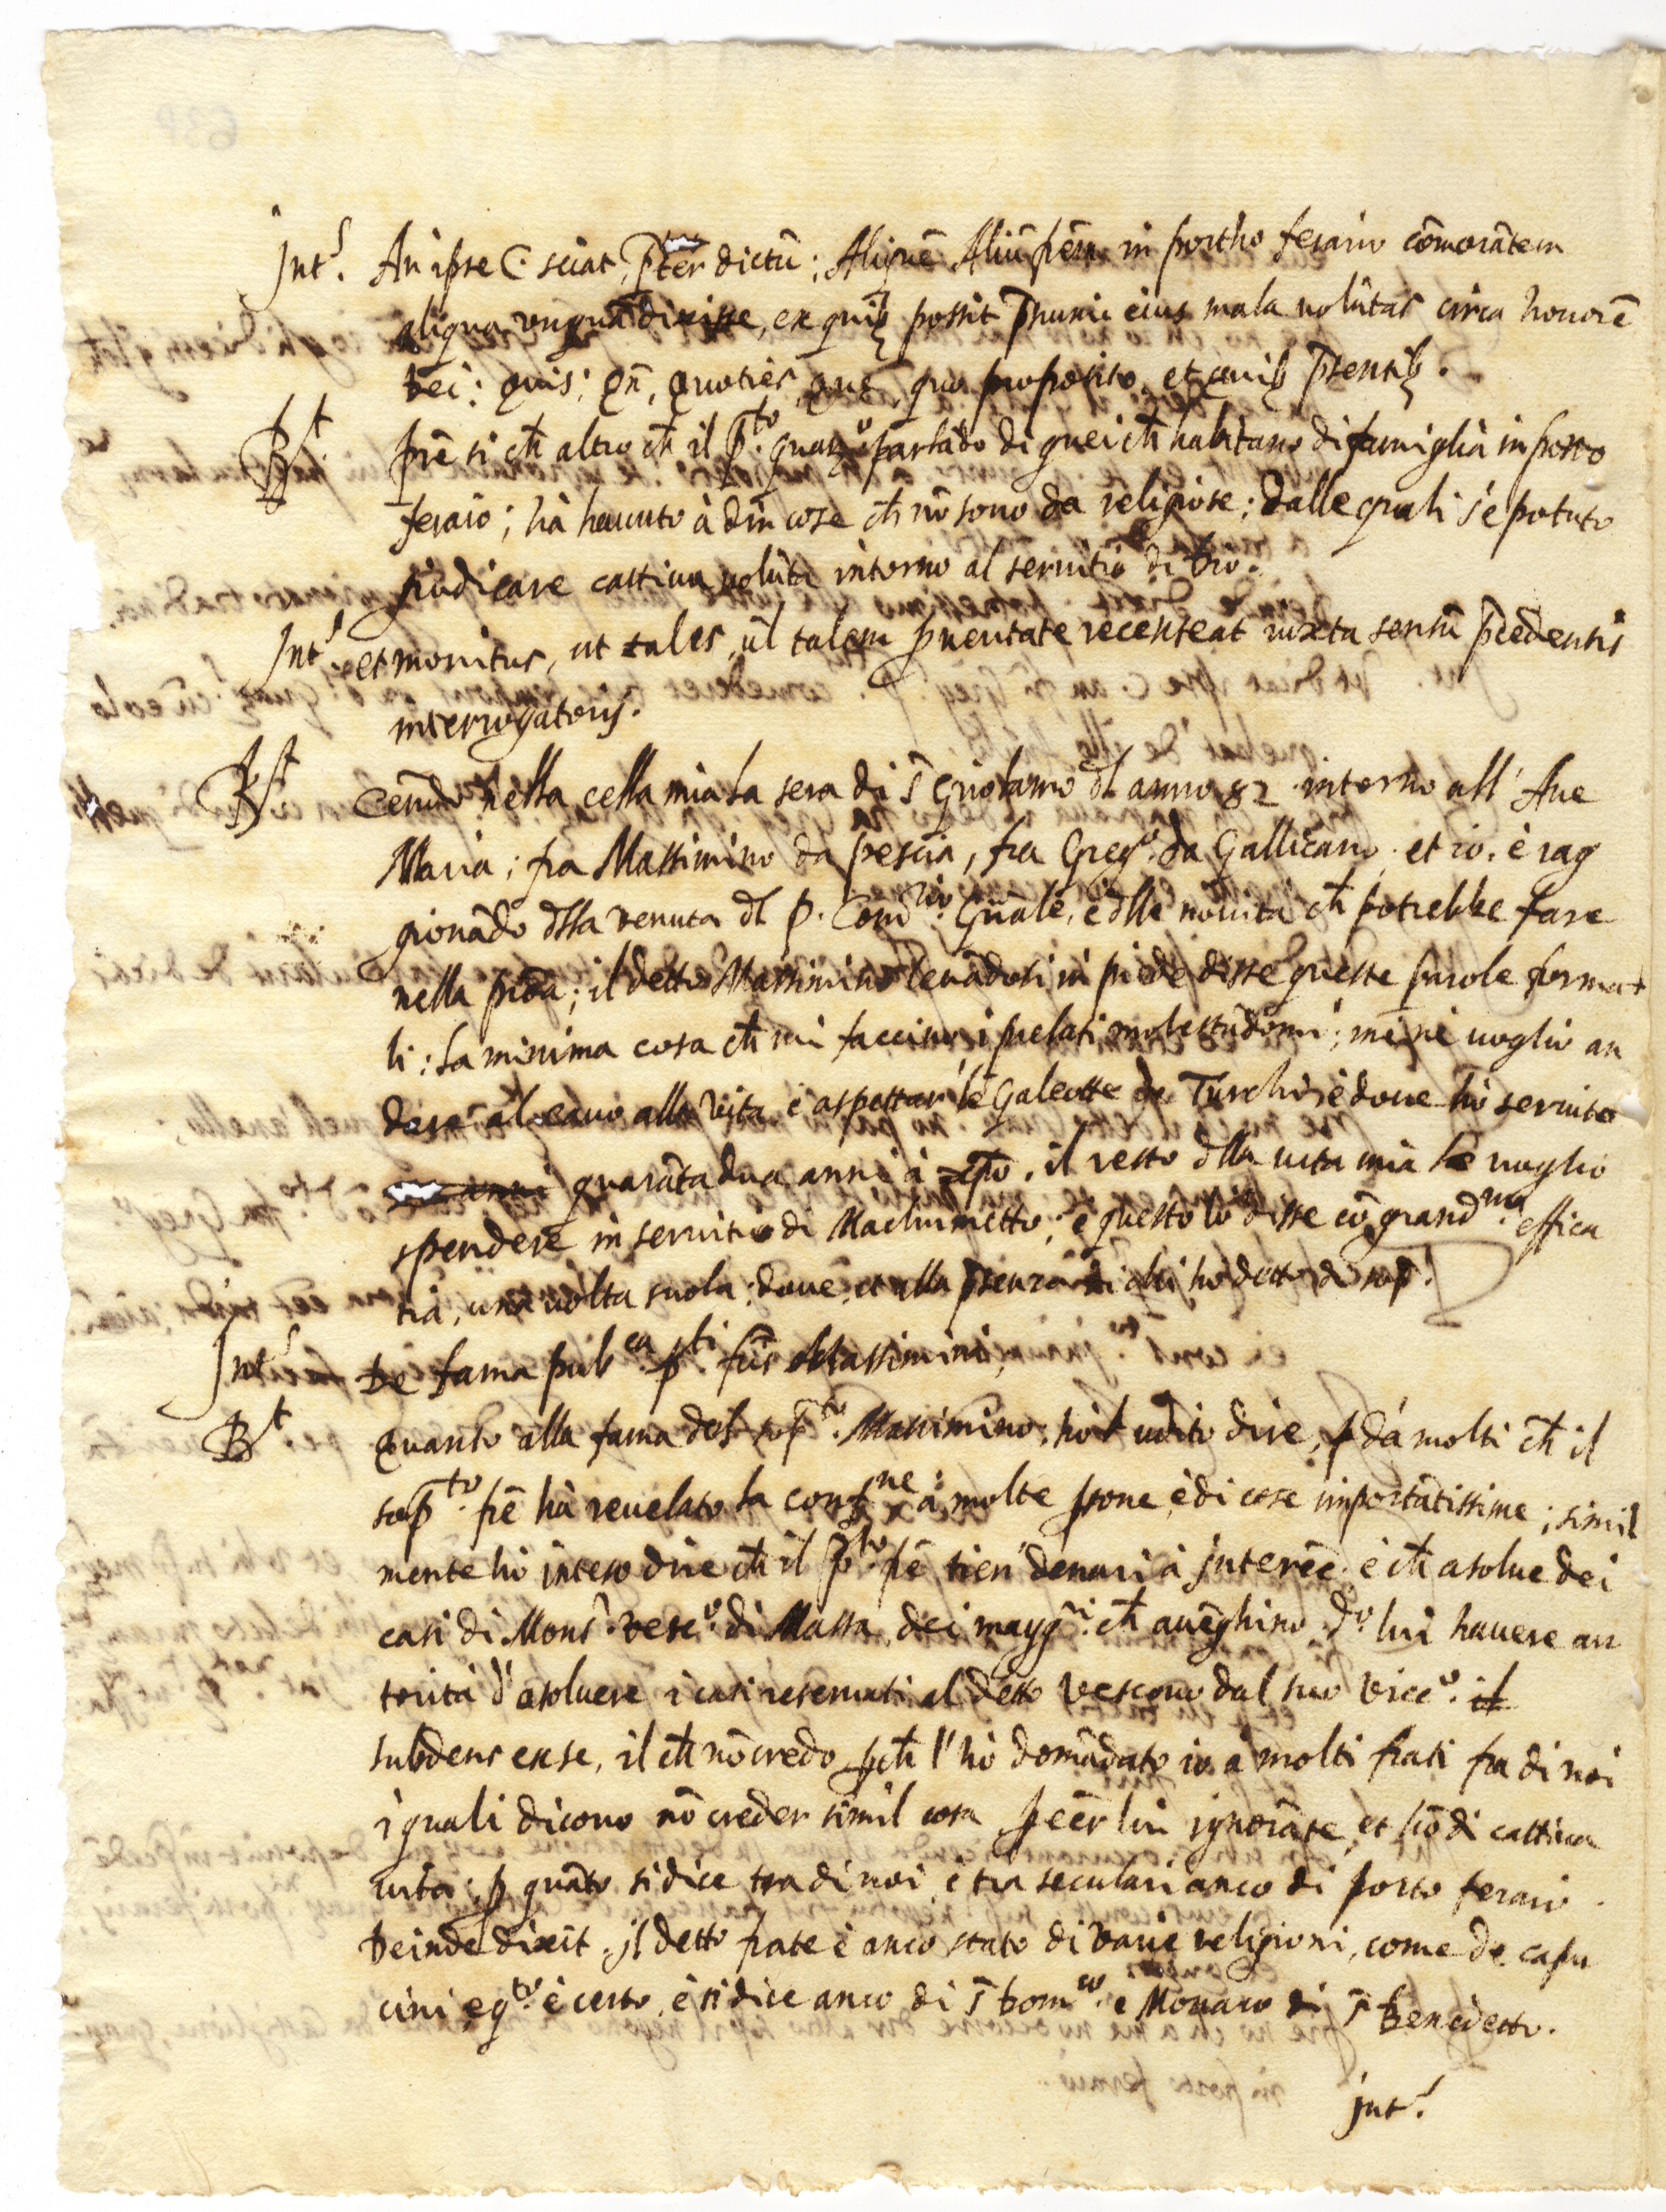 Int.s An ipse C. sciat, p̄ter dictū; Aliquē Aliū frēm in portho ferario cōmorātem
aliqua unquā dixisse, ex quib; possit p̄sumi eius mala volūtas circa honorē
Dei: quis; qn̄, quoties, quę, quo proposito, et quib; p̄sentib;.
R.t frē si ch̄ altro ch̄ il p̄.to quarg.o parlādo di quei ch̄ habitano di famiglia in porto
feraio; hà hauuto à dir̄ cose ch̄ nō sono da religiose; dalle quali s'è potuto
giudicare cattiua volūtà intorno al seruitio di Dio.
Int.s et monitus, ut tales, ūl talem p̱ ueritate recenseat iuxta sensū p̄cedentis
interrogatorij.
R.t Cēnādo nella cella mia la sera di S̄ Girolamo dl̄ anno 82 intorno all' Aue
Maria; fra Massimino da pescia, fra Greg.o da Gallicano, et io, è rag
gionādo dlla venuta dl̄ P. Com.rio Gn̄ale, è dlle nouità ch̄ potrebbe fare
nella prōa; il detto Massimino leuādosi in piede disse queste parole forma
li: La minima cosa ch̄ mi faccino i prelati molestādomi; me ne uoglio an
dare al cauo alla vita è aspettar le Galeotte de Turchi, è doue hò seruito
anni quarāta dua anni à xp̄o, il resto dlla uita mia lo uoglio
spendere in seruitio di Machumetto; è questo lo disse cō grand.ma effica
tia, una uolta suola; doue, et alla p̄senza di chi ho detto di sop.a
Int.s De fama pub.ca p.ti frīs Massimini,
R.t Quanto alla fama del sop.to Massimino; hò udito dire, dà molti ch̄ il
sop.to frē hà reuelato la conf.ne à molte p̱sone, è di cose importātissime; simil
mente hò inteso dire ch̄ il p̄.to frē tien denari à interēe è ch̄ asolue dei
casi di Mons.r Vesc.o di Massa, dei magg.ri ch̄ auēghino, d.o lui hauere au
torità d'asoluere i casi reseruati al detto Vescouo dal suo Vicc.o. il
subdens ex se, il ch̄ nō credo p̱ch̄ l'hò domādato io à molti frati fra di noi
i quali dicono nō creder simil cosa p̱ eēr lui ignorāte, et hō di cattiua
uita; p̱ quāto si dice tra di noi, è tra seculari anco di porto feraio.
Deinde dixit, il detto frate è anco stato di varie religioni, come de capu
cini e q.to è certo, è si dice anco di S̄ Dom.co è Monaco di S̄ Benedetto.
Int.s